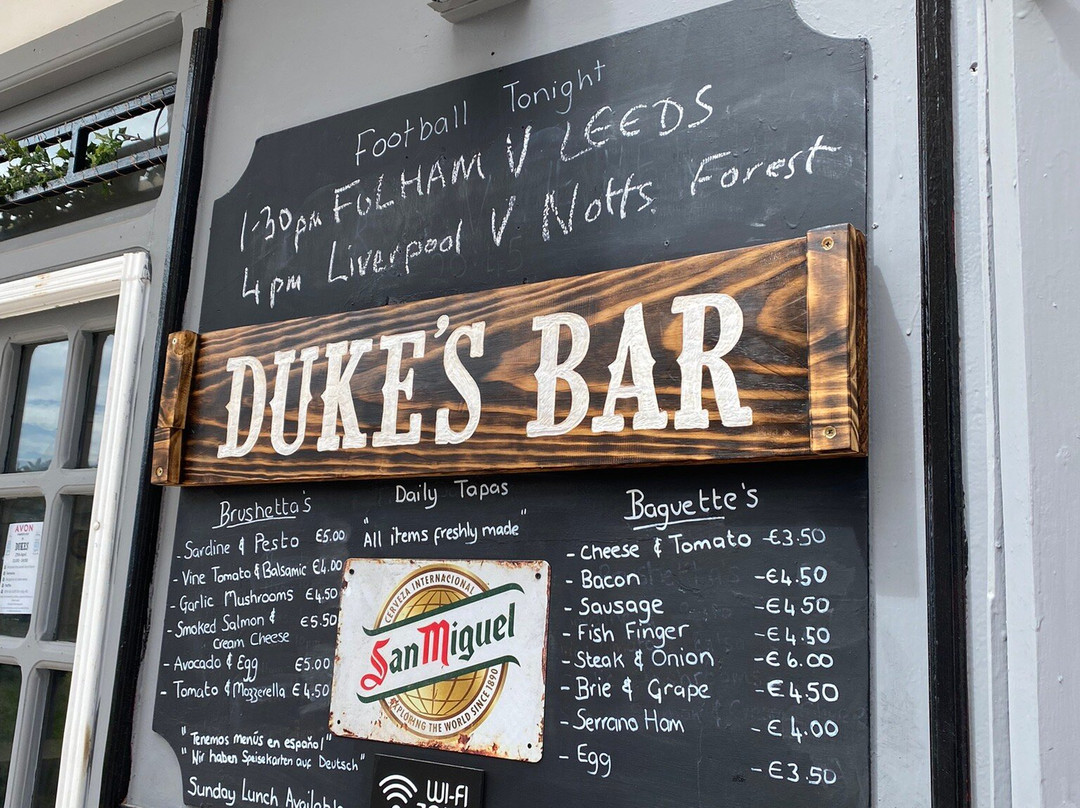 Football Tonight
1-30pm FULHAM V LEEDS
4pm Liverpool V Notts Forest
DUKE'S BAR
Brushetta's
- Sardine & Pesto €5.00
- Vine Tomato & Balsamic €4.00
- Garlic Mushrooms €4.50
- Smoked Salmon & €5.50
Cream Cheese
- Avocado & Egg €5.00
- Tomato & Mozzerella €4.50
"Tenemos menús en español"
"Wir haben Speisekarten auf Deutsch"
Sunday Lunch Available
Daily Tapas
"All items freshly made"
CERVEZA INTERNACIONAL
San Miguel
EXPLORING THE WORLD SINCE 1890
WI-FI
Baguette's
- Cheese & Tomato -€3.50
- Bacon -€4.50
- Sausage -€4.50
- Fish Finger -€4.50
- Steak & Onion -€6.00
- Brie & Grape -€4.50
- Serrano Ham -€4.00
- Egg -€3.50
AVON
DUKES